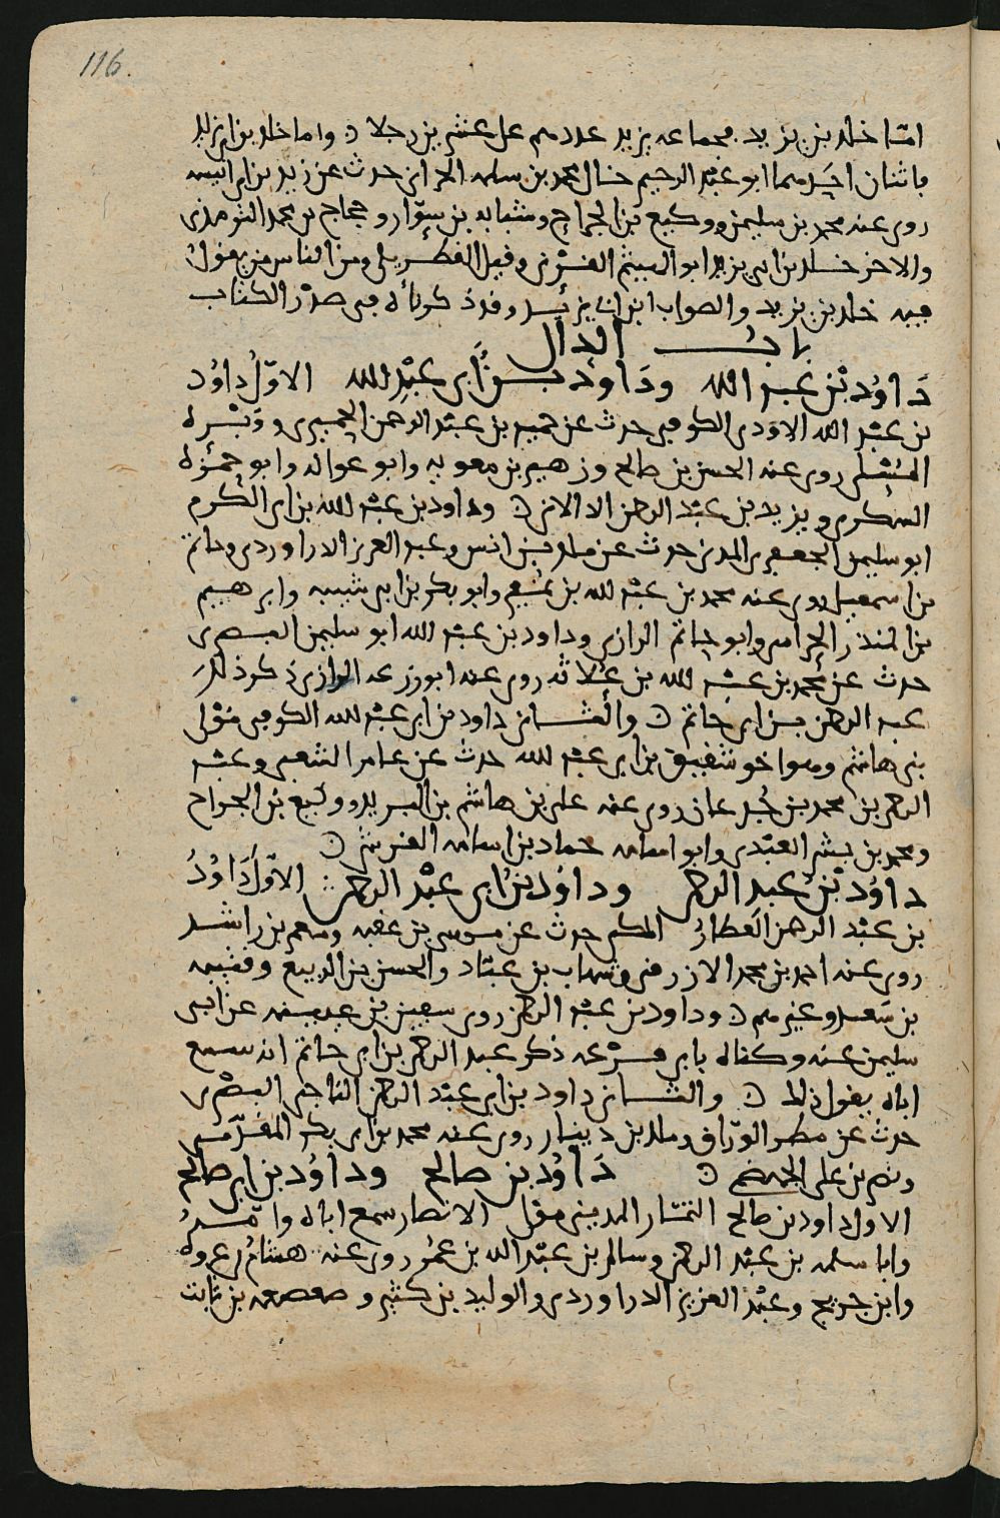 116.
امّا خلد بن يزيد فجماعه يزيد عددهم على عشرين رجلا ۞ واما خلد بن ابي يزيد
فاثنان احدهما ابو عبد الرحيم خال محمد بن سلمه الحراني حدث عن زيد بن ابي انيسه
روى عنه محمد بن سليمن ووكيع بن الجراح وشبابه بن سوّار وحجاج بن محمد الترمذي
والاخر خلد بن ابي يزيد ابو الهيثم القرني وقيل القطربلي ومن الناس من يقول
فيه خلد بن يزيد والصواب ابن ابي يزيد وقد ذكرناه في صدر الكتاب
باب الدال
دَاوُد بْن عبد الله ودَاود بن أبي عبْد الله الاوّل داوُد
بن عبْد الله الاوْدي الكوفي حدث عن حميد بن عبْد الرحمن الحميري ووَبْره
المُسْلي روى عنه الحسن بن صالح وزهير بن معويه وابو عوانه وابو حمْزه
السكري ويزيد بن عبْد الرحمن الدالاني ۞ وداود بن عبْد الله بن ابي الكرم
ابو سليمن الجعفري المدني حدث عن ملك بن انس وعبد العزيز الدراوردي وحاتم
بن اسمعيل روى عنه محمد بن عبْد الله بن نُمير وابو بكر بن ابي شيبه وابرهيم
بن المنذر الحزامي وابو حاتم الرازي وداود بن عبْد الله ابو سليمن البصْري
حدث عن محمد بن عبْد الله بن عُلاثه روى عنه ابو زرعه الرازي ذكر ذلك
عبد الرحمن بن ابي حاتم ۞ والثاني داود بن ابي عبْد الله الكوفي موْلى
بني هاشم وهو اخو شقيق بن ابي عبْد الله حدث عن عامر الشعبي وعبْد
الرحمن بن محمد بن جُدعان روى عنه علي بن هاشم بن البريد ووكيع بن الجراح
ومحمد بن بشر العبْدي وابو اسامه حماد بن اسامه القرشي ۞
داوُد بْن عبد الرحمن وداوُد بن ابي عبْد الرحمن الاوّل دَاوُد
بن عبْد الرحمن العطارُ المكي حدث عن موسى بن عقبه ومعمر بن راشد
روى عنه احمد بن محمد الازرقي وشهاب بن عبّاد والحسن بن الربيع وقتيبه
بن سَعيد وغيرهم ۞ وداود بن عبْد الرحمن روى سفيان بن عيينه عن ابي
سليمن عنه وكناه بابي ذكر عبد الرحمن بن ابي حاتم انه سمع
اباه يقول ذلك ۞ والثاني داود بن ابي عبْد الرحمن الناجي البصْري
حدث عن مطر الورّاق وملك بن دينار روى عنه محمد بن ابي بكر المقدّمي
ونصر بن علي الجهضمي ۞ دَاوُد بن صالح ودَاوُد بن ابي صالح
الاول داود بن صالح التمّار المديني موْلى الانصار سمع اباه وامّه
وابا سلمه بن عبْد الرحمن وسالم بن عبْد الله بن عُمر روى عنه هشام بن عروه
وابن جريج وعبْد العزيز الدراوردي والوليد بن كثير وصعصعه بن ثابت